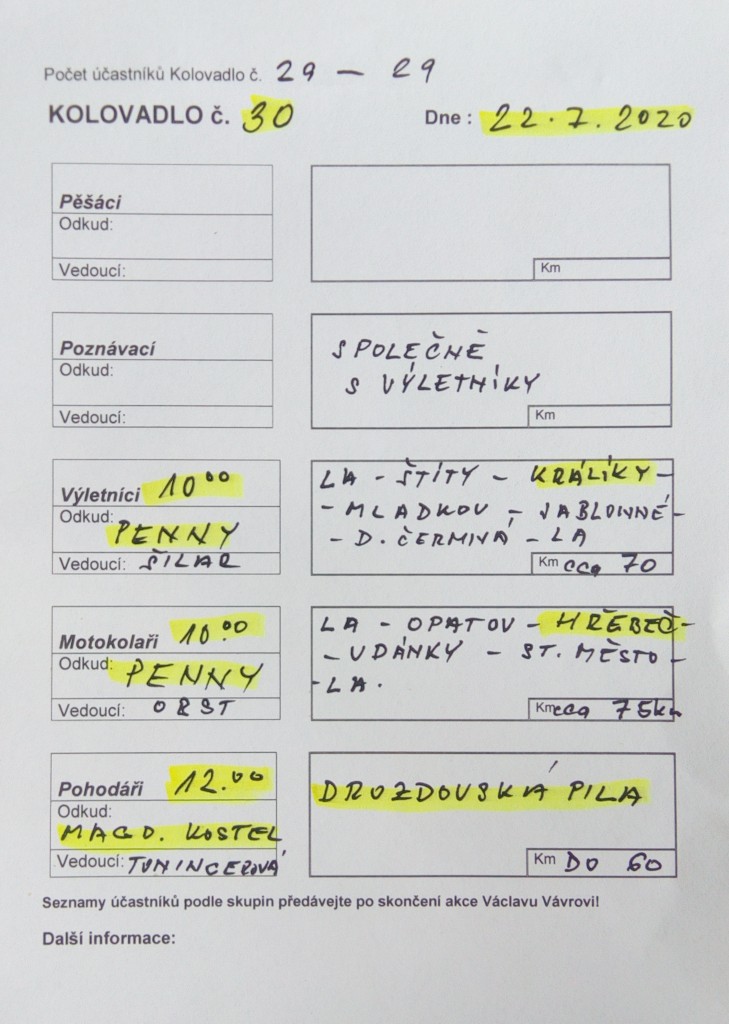 Počet účastníků Kolovadlo č. 29 – 29
KOLOVADLO č. 30 Dne : 22.7.2020
Pěšáci
Odkud:
Vedoucí:
Km
Poznávací
Odkud:
Vedoucí:
SPOLEČNĚ
S VÝLETNÍKY
Km
Výletníci 10⁰⁰
Odkud:
PENNY
Vedoucí: ŠILAR
LA - ŠTÍTY - KRÁLÍKY -
- MLADKOV - JABLONNÉ -
- D. ČERMNÁ - LA
Km cca 70
Motokolaři 10⁰⁰
Odkud: PENNY
Vedoucí: ORST
LA - OPATOV - HŘEBEČ -
- UDÁNKY - ST. MĚSTO -
- LA.
Km cca 75km
Pohodáři 12.⁰⁰
Odkud:
MAGD. KOSTEL
Vedoucí: TUNINGEROVÁ
DROZDOVSKÁ PILA
Km DO 60
Seznamy účastníků podle skupin předávejte po skončení akce Václavu Vávrovi!
Další informace: